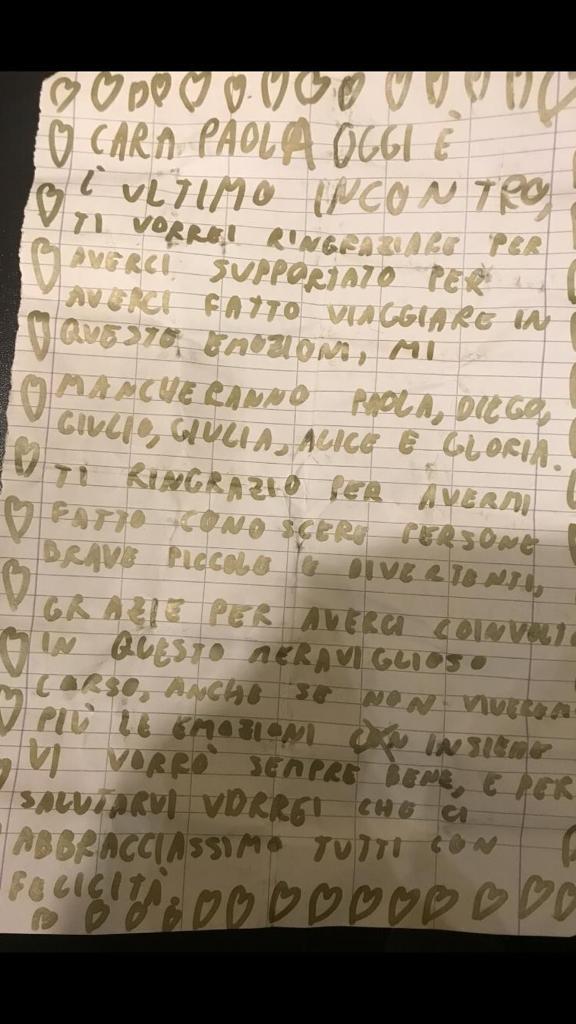 CARA PAOLA OGGI È
L'ULTIMO INCONTRO,
TI VORREI RINGRAZIARE PER
AVERCI SUPPORTATO PER
AVERCI FATTO VIAGGIARE IN
QUESTE EMOZIONI, MI
MANCHERANNO PAOLA, DIEGO,
GIULIO, GIULIA, ALICE E GLORIA.
TI RINGRAZIO PER AVERMI
FATTO CONOSCERE PERSONE
BRAVE PICCOLE E DIVERTENTI,
GRAZIE PER AVERCI COINVOLTI
IN QUESTO MERAVIGLIOSO
CORSO, ANCHE SE NON
PIÙ LE EMOZIONI INSIEME
VI VORRÒ SEMPRE BENE, E PER
SALUTARVI VORREI CHE CI
ABBRACCIASSIMO TUTTI CON
FELICITÀ.